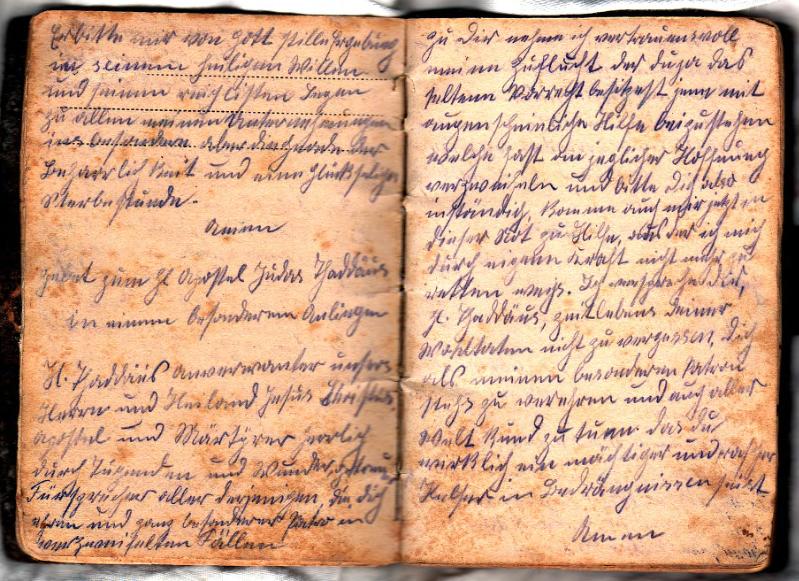 Erbitte mir von Gott stille Ergebung
in seinen heiligen Willen
und seinen reichlichsten Segen
zu allen meinen Unternehmungen
insbesondere aber die Gnade der
Beharrlichkeit und eine glückselige
Sterbestunde.
Amen
Gebet zum hl Apostel Judas Thaddäus
in einem besonderen Anliegen
H. Thaddäus anverwanter unsers
Herrn und Heiland Jesus Christus
Apostel und Märtyrer herrlich
durch Tugenden und Wunder, getreuer
Fürsprecher aller derjenigen die dich
ehren und ganz besonderer Patron in
verzweifelten Fällen
zu Dir nehme ich vertrauensvoll
meine Zuflucht der du ja das
seltene Vorrecht besitzest jene mit
augenscheinliche Hilfe beizustehen
welche fast an jeglicher Hoffnung
verzweifeln und bitte Dich also
inständig, komme auch mir jetzt in
dieser Not zu Hilfe, aus der ich mich
durch eigene Kraft nicht mehr zu
retten weis. Ich verspreche dir,
hl. Thaddäus, zeitlebens deiner
Wohltaten nicht zu vergessen, Dich
als meinen besonderen Patron
stehts zu verehren und auch aller
Welt kund zu tuen das du
wirklich ein mächtiger und rascher
Helfer in Bedrängnissen seist
Amen